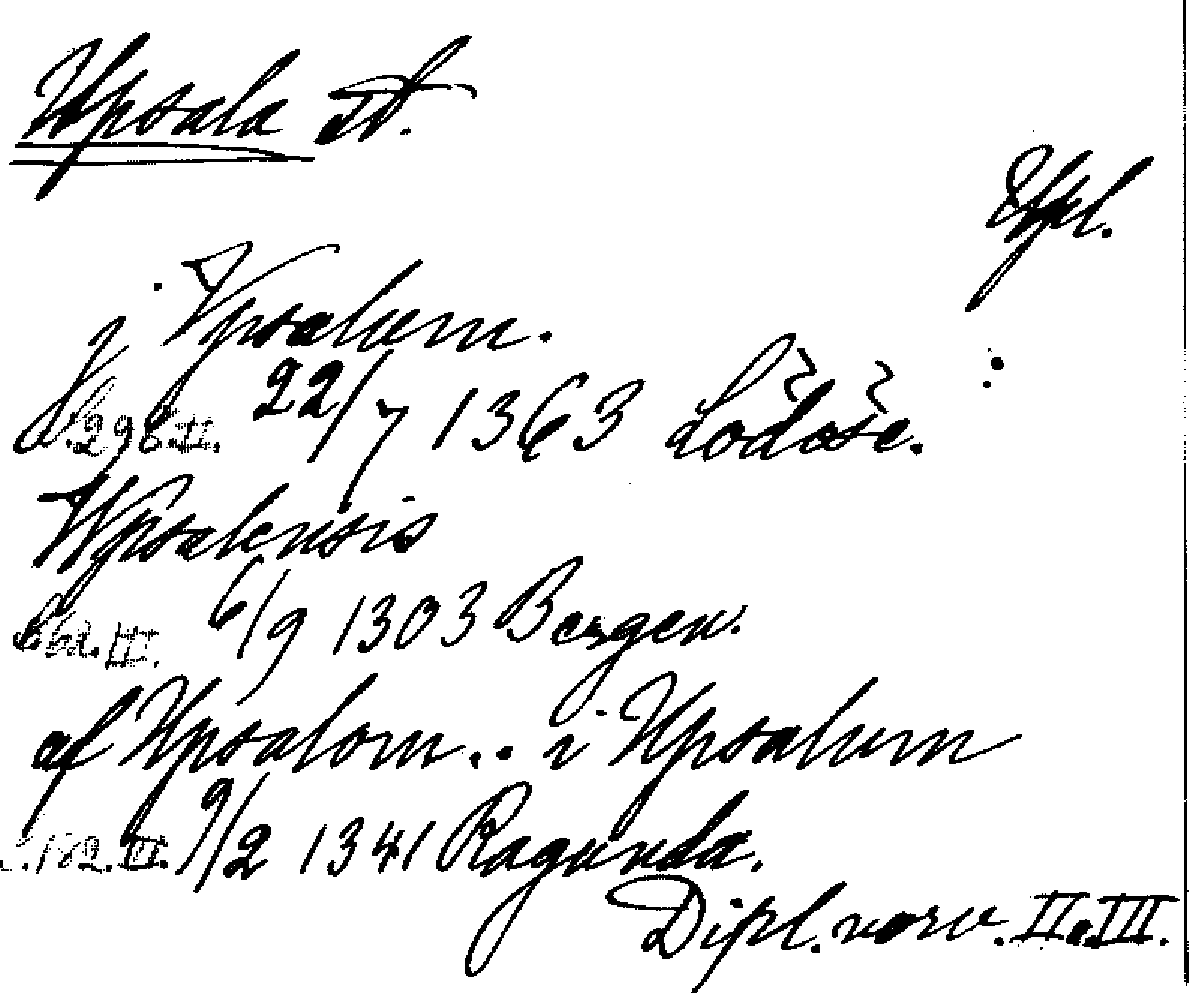 Upsala st.
Upl.
j Vpsalum.
s. 296. II. 22/7 1363 Lödöse.
Vpsalensis
s. 62. III. 6/9 1303 Bergen.
af Upsalom .. i Upsalum
s. 182. III. 9/2 1341 Ragunda.
Dipl. norv. II. III.